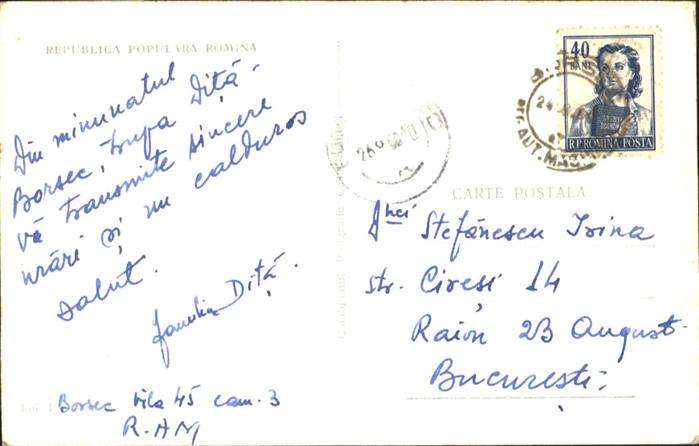 REPUBLICA POPULARA ROMINA
Din minunatul
Borsec, trupa Diță
vă transmite sincere
urări și un călduros
salut.
Familia Diță.
Borsec vila 45 cam. 3
R.AM
40
BANI
R.P.ROMINA POSTA
26 9
CARTE POSTALA
Dnei Stefănescu Irina
str. Cireși 14
Raion 23 August
București